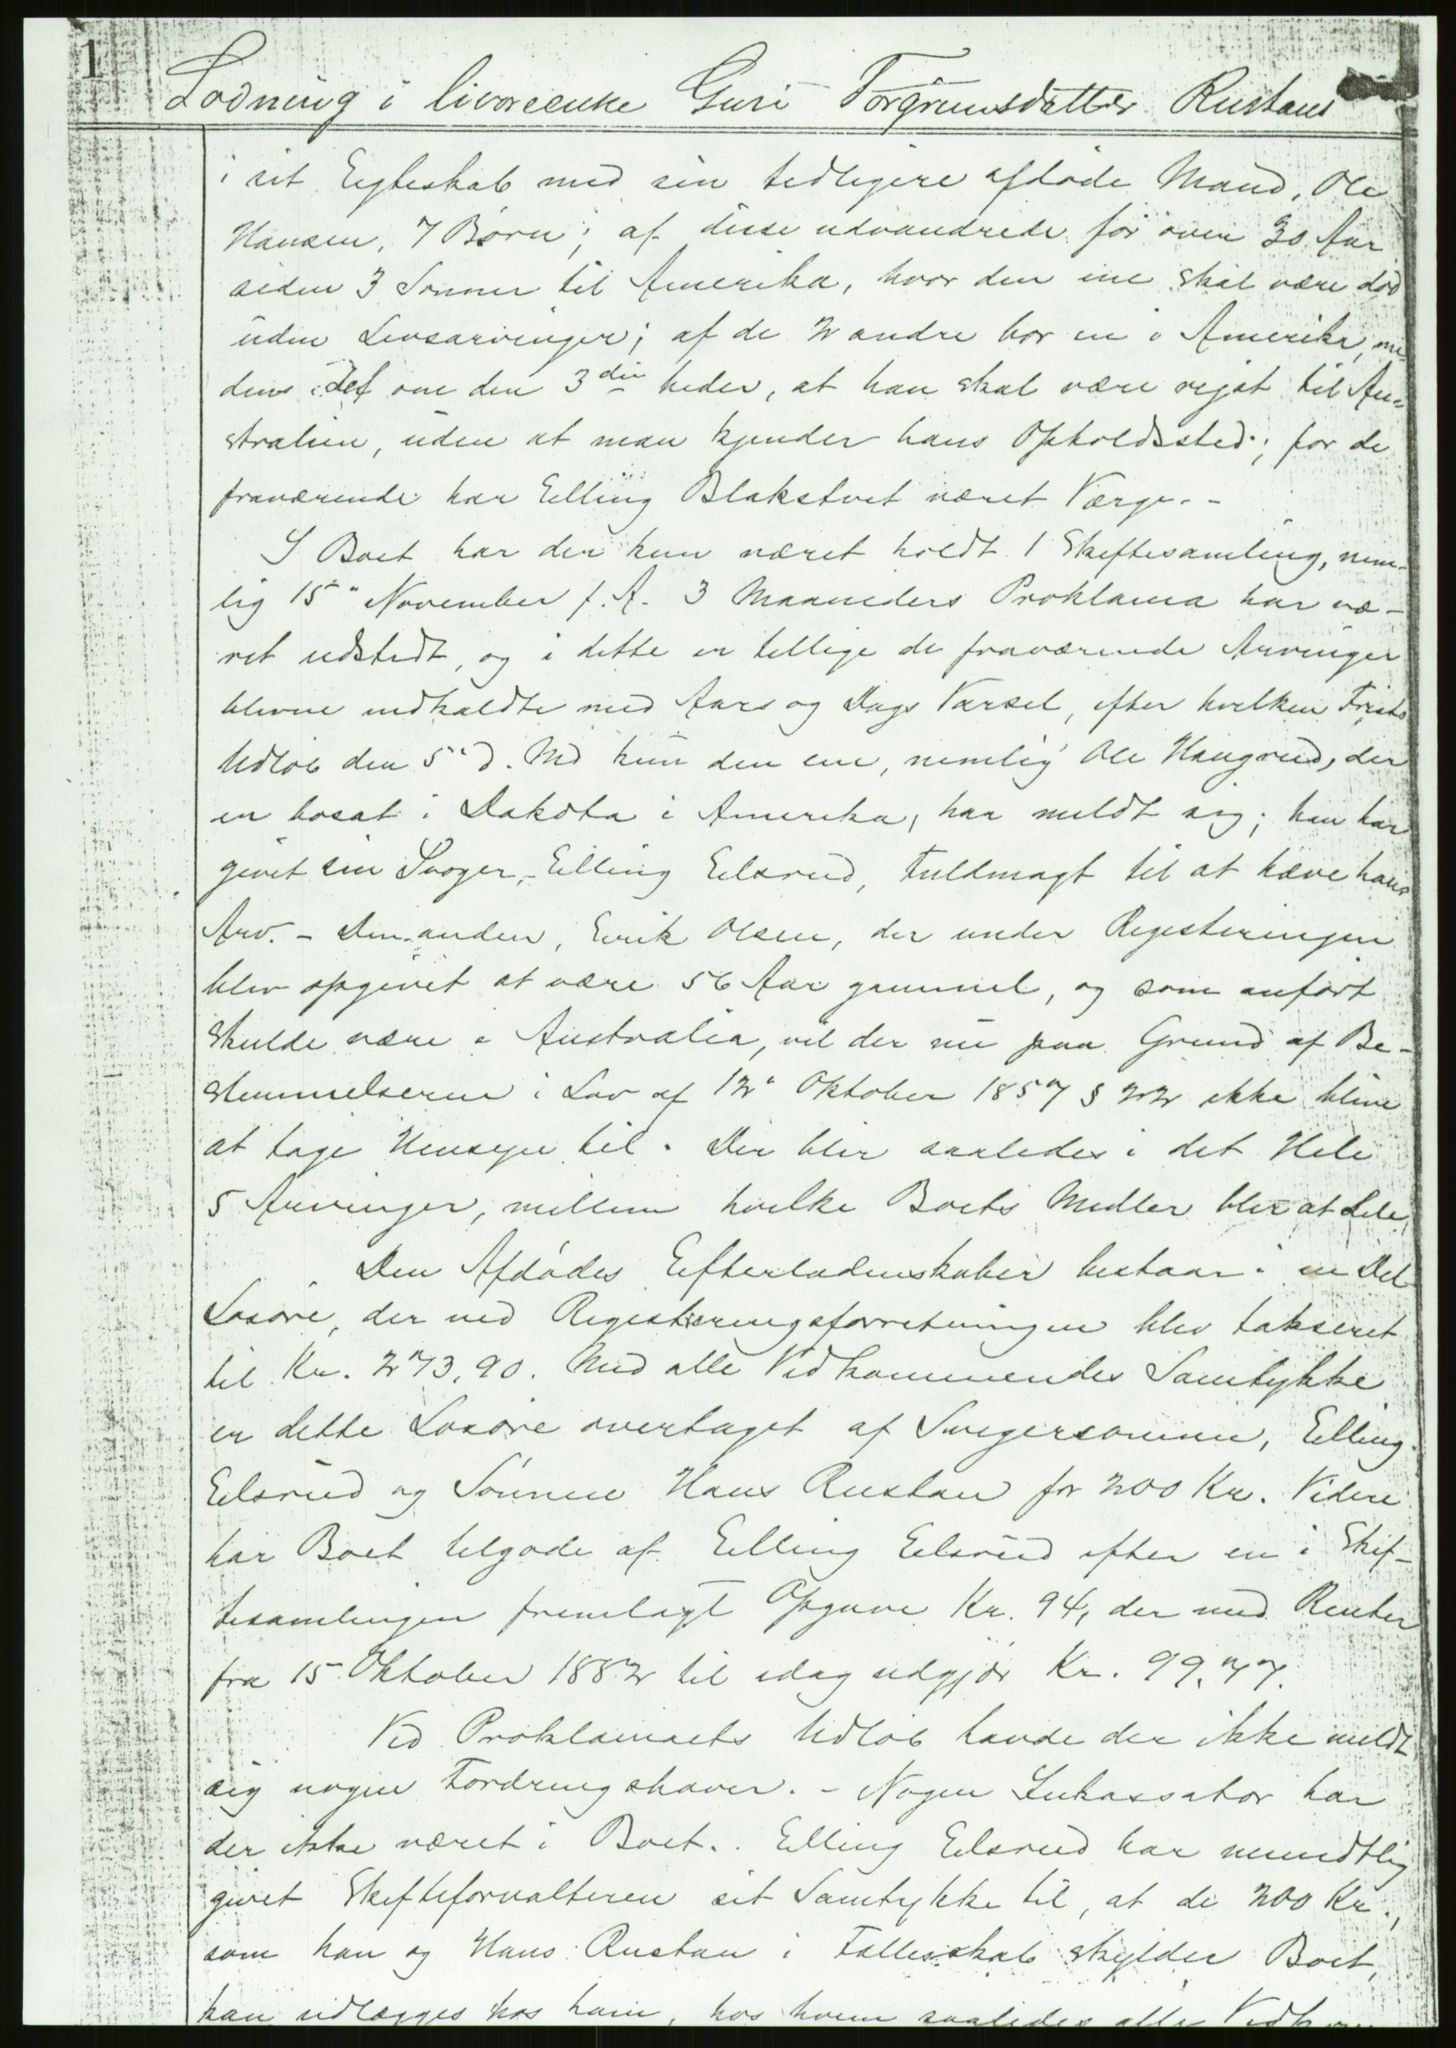 1
Lodning i livøreenke Guri Torgrimsdatter Rustans
i sit Egteskab med sin tidligere afdøde Mand, Ole
Hansen, 7 Børn; af disse udvandrede for over 30 Aar
siden 3 Sønner til Amerika, hvor den ene skal være død
uden Livsarvinger; af de 2 andre bor en i Amerika, me-
dens det om den 3die heder, at han skal være rejst til Au-
stralien, uden at man kjender hans Opholdssted; for de
fraværende har Elling Blakstvet været Værge. -
I Boet har der kun været holdt 1 Skiftesamling, nem-
lig 15de November f. A. 3 Maaneders Proklama har væ-
ret udstedt, og i dette er tillige de fraværende Arvinger
blevne indkaldte med Aars og Dags Varsel, efter hvilken Frists
Udløb den 5' d. Md kun den ene, nemlig Ole Haugrud, der
er bosat i Dakota i Amerika, har meldt sig; han har
givet sin Svoger, Elling Elsrud, Fuldmagt til at hæve hans
Arv. - Den anden, Erik Olsen, der under Registeringen
blev opgivet at være 56 Aar gammel, og som anført
skulde være i Australia, vil der nu paa Grund af Be-
stemmelserne i Lov af 12' Oktober 1857 § 22 ikke blive
at tage Hensyn til. Der blir saaledes i det Hele
5 Arvinger, mellem hvilke Boets Midler blir at dele.
Den Afdødes Efterladenskaber bestaar i en Del
Løsøre, der ved Registeringsforretningen blev takseret
til Kr. 273,90. Med alle Vedkommendes Samtykke
er dette Løsøre overtaget af Svigersønnen, Elling
Elsrud og Sønnen Hans Rustan for 200 Kr. Videre
har Boet tilgode af Elling Elsrud efter en i Skif-
tesamlingen fremlagt Opgave Kr. 94, der med Renter
fra 15 Oktober 1882 til idag udgjør Kr. 99,77.
Ved Proklamaets Udløb havde der ikke meldt
sig nogen Fordringshaver. - Nogen Inkassator har
der ikke været i Boet. Elling Elsrud har mundtlig
givet Skifteforvalteren sit Samtykke til, at de 200 Kr.,
som han og Hans Rustan i Fællesskab skylder Boet,
kan udlægges hos ham, hos hvem saaledes alle